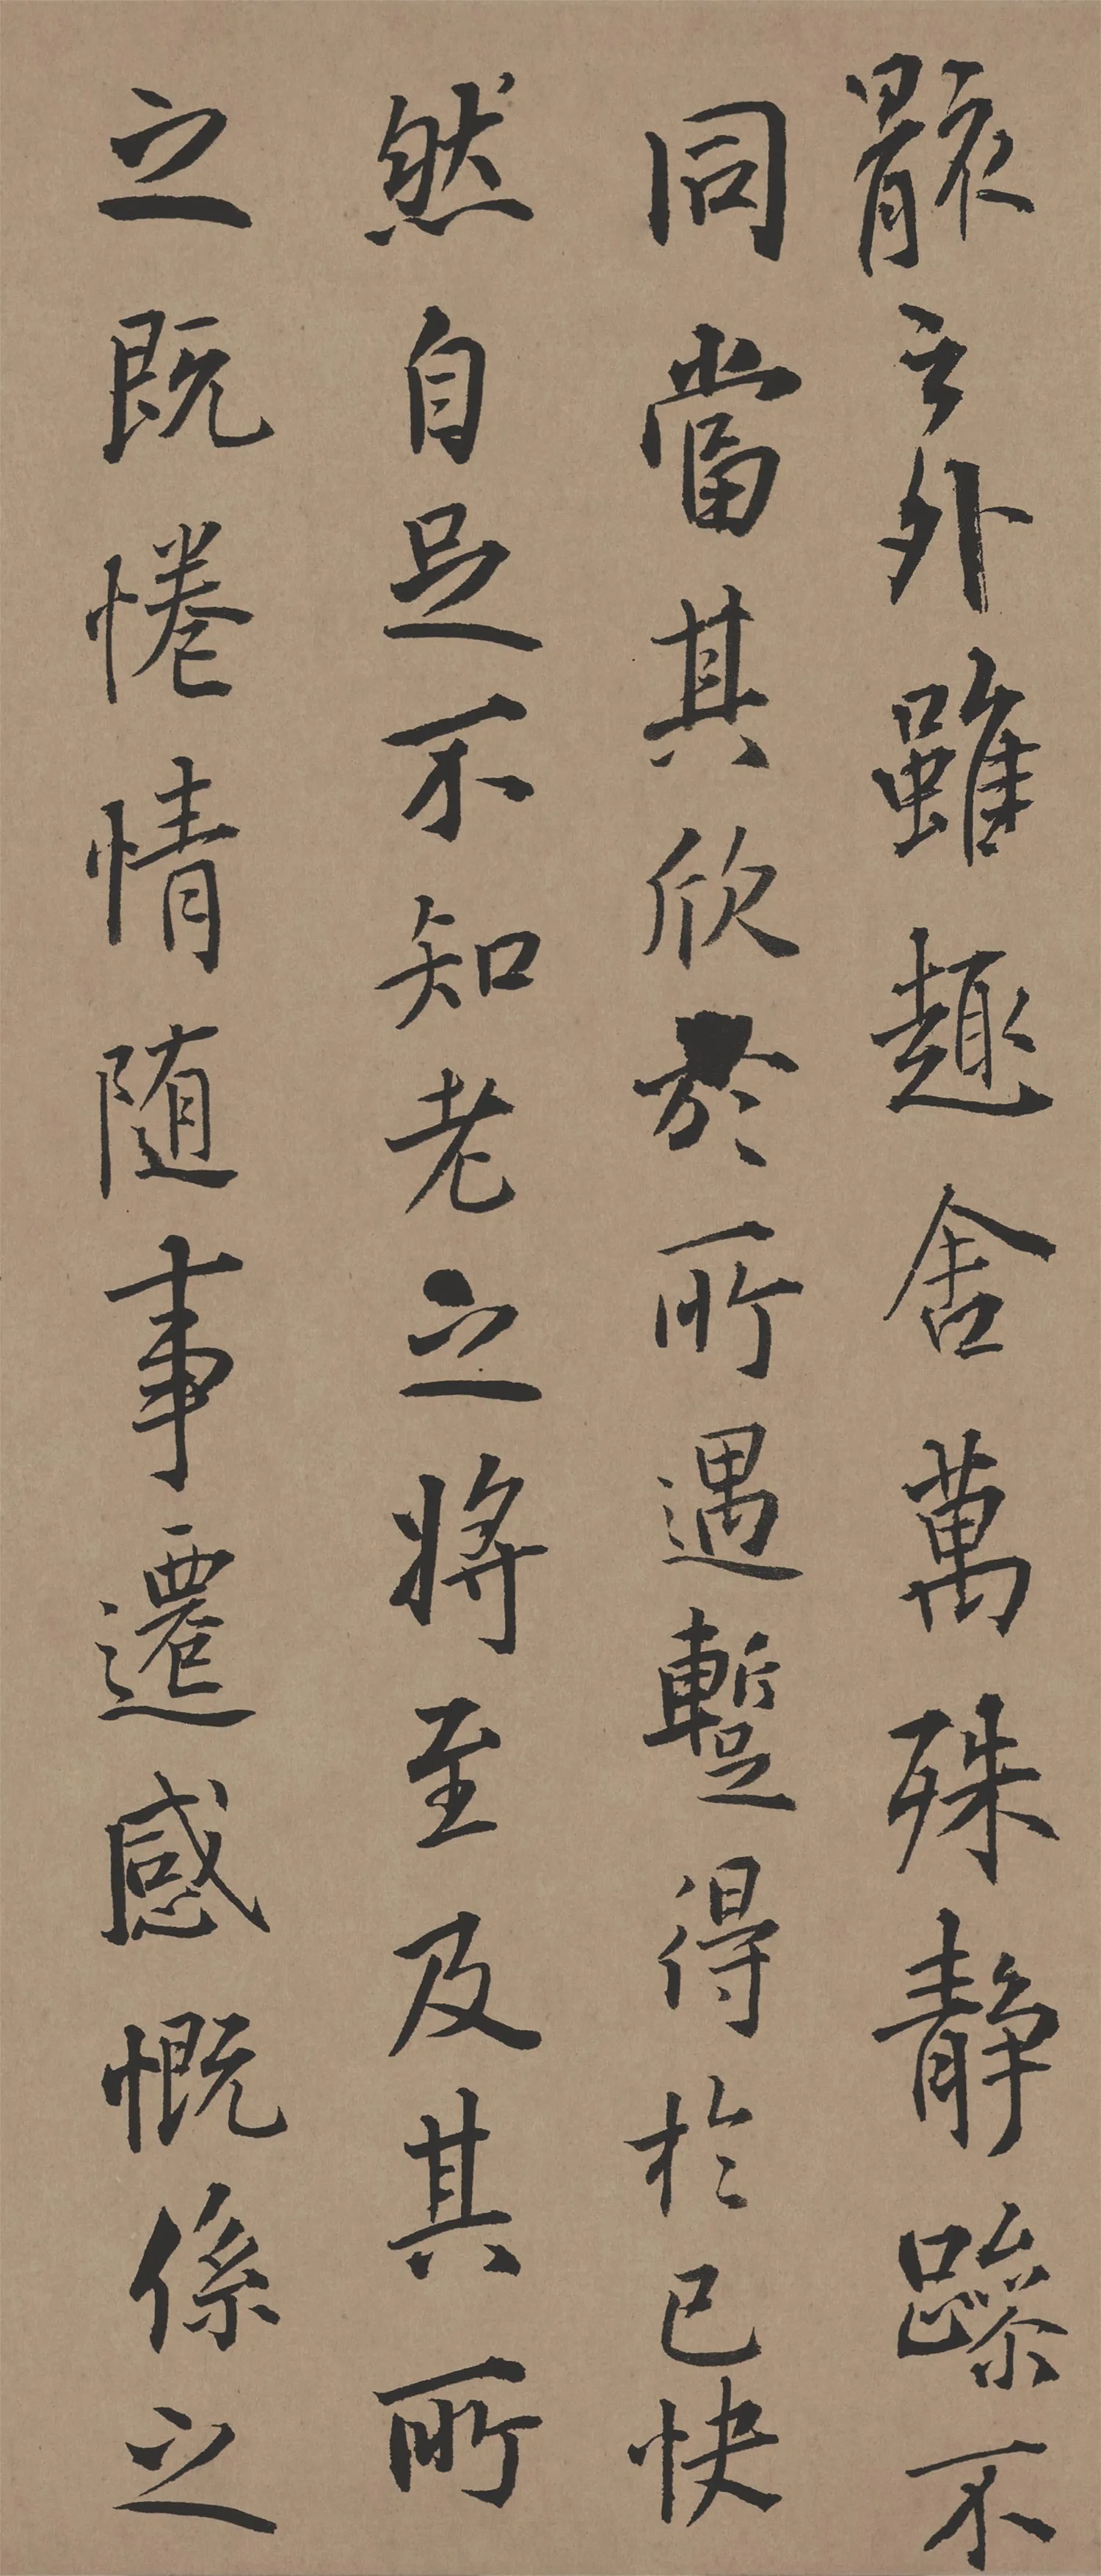 骸之外雖趣舍萬殊静躁不
同當其欣於所遇蹔得於己快
然自足不知老之將至及其所
之既惓情随事遷感慨係之